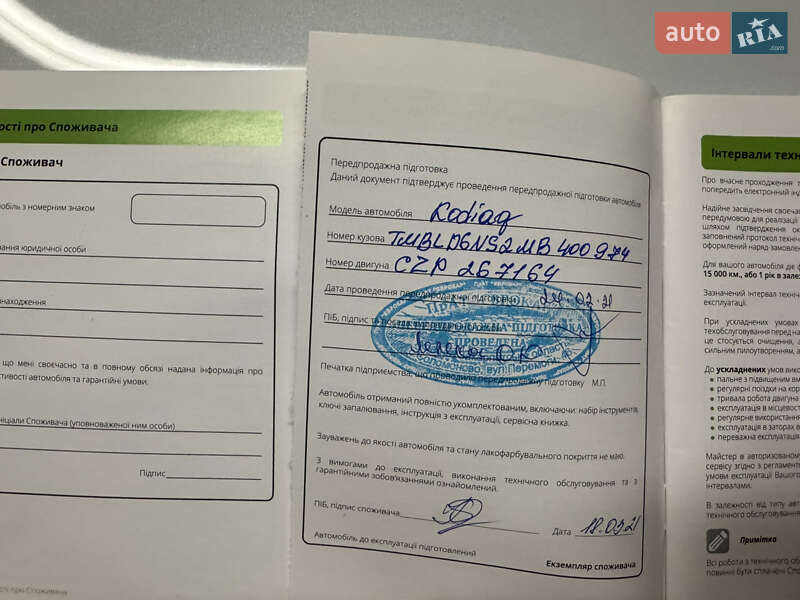 auto RIA.com
ості про Споживача
Споживач
обіль з номерним знаком
ання юридичної особи
знаходження
що мені своєчасно та в повному обсязі надана інформація про
тивості автомобіля та гарантійні умови.
ініціали Споживача (уповноваженої ним особи)
Підпис
ості про Споживача
Передпродажна підготовка
Даний документ підтверджує проведення передпродажної підготовки автомобіля
Модель автомобіля Kodiaq
Номер кузова TMBLD6NS2MB400974
Номер двигуна CZP 267164
Дата проведення передпродажної підготовки 24.02.21
ПІБ, підпис та
ПЕРЕДПРОДАЖНА ПІДГОТОВКА
ПРОВЕДЕНА
область
Соломоново, вул. Перемоги,
Печатка підприємства, що проводило передпродажну підготовку М.П.
Автомобіль отриманий повністю укомплектованим, включаючи: набір інструментів,
ключі запалювання, інструкція з експлуатації, сервісна книжка.
Зауважень до якості автомобіля та стану лакофарбувального покриття не маю.
З вимогами до експлуатації, виконання технічного обслуговування та з
гарантійними зобов'язаннями ознайомлений.
ПІБ, підпис споживача
Дата 18.03.21
Автомобіль до експлуатації підготовлений
Екземпляр споживача
Інтервали техн
Про вчасне проходження т
попередить електронний інд
Надійне засвідчення своєча
передумовою для реалізації
шляхом підтвердження ок
заповнений протокол технічн
оформлений наряд-замовлен
Для вашого автомобіля діє ф
15 000 км., або 1 рік в зале
Зазначений інтервал технічн
експлуатації.
При ускладнених умовах
техобслуговування перед на
це стосується очищення, а
сильним пилоутворенням, а
До ускладнених умов викон
пальне з підвищеним вм
регулярні поїздки на кор
тривала робота двигуна
експлуатація в місцевост
регулярне використання
експлуатація в заторах в
переважна експлуатація
Майстер в авторизованому
сервісу згідно з регламенто
умови експлуатації Вашого
інтервалами.
В залежності від типу авто
технічного обслуговування
Примітка
Всі роботи з технічного об
повинні бути сплачені Спо